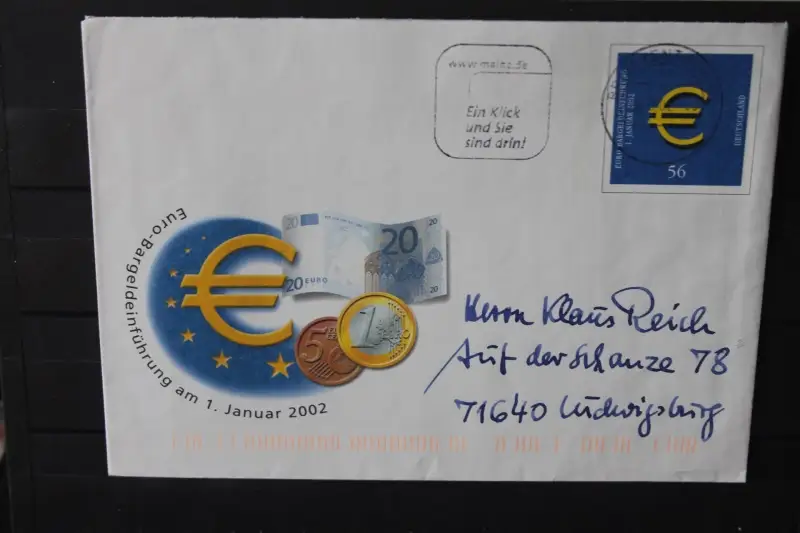 www.mainz.de
Ein Klick
und Sie
sind drin!
EURO BARGELDEINFÜHRUNG
1. JANUAR 2002
DEUTSCHLAND
56
Euro-Bargeldeinführung am 1. Januar 2002
20
20
20
20 EURO
20
5
1
Herrn Klaus Reich
Auf der Schanze 78
71640 Ludwigsburg